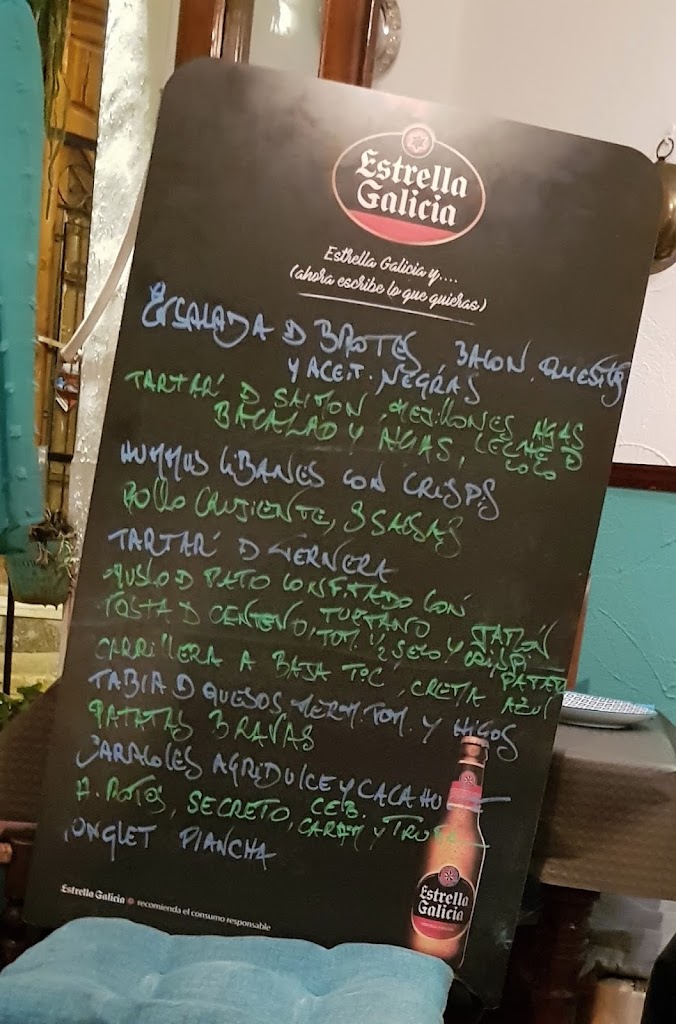 Estrella
Galicia
Estrella Galicia y....
(ahora escribe lo que quieras)
ENSALADA D BROTES, BACON, QUESITOS
Y ACEIT. NEGRAS
TARTAR D SALMON, MEJILLONES, ALGAS
BACALAO Y ALGAS, LECHE D
COCO
HUMMUS LIBANES CON CRISPIS
POLLO CRUJIENTE, 3 SALSAS
TARTAR D TERNERA
MUSLO D PATO CONFITADO CON
TOSTA D CENTENO, TUÉTANO, JAMÓN
CARRILLERA A BAJA Tº C, CREMA PATATA
AZUL
TABLA D QUESOS MERM. TOM. Y HIGOS
PATATAS BRAVAS
CARACOLES AGRIDULCE Y CACAHUETE
H. ROTOS, SECRETO, CEB.
CARAM Y TRUFA
ONGLET PLANCHA
Estrella Galicia recomienda el consumo responsable
Estrella
Galicia